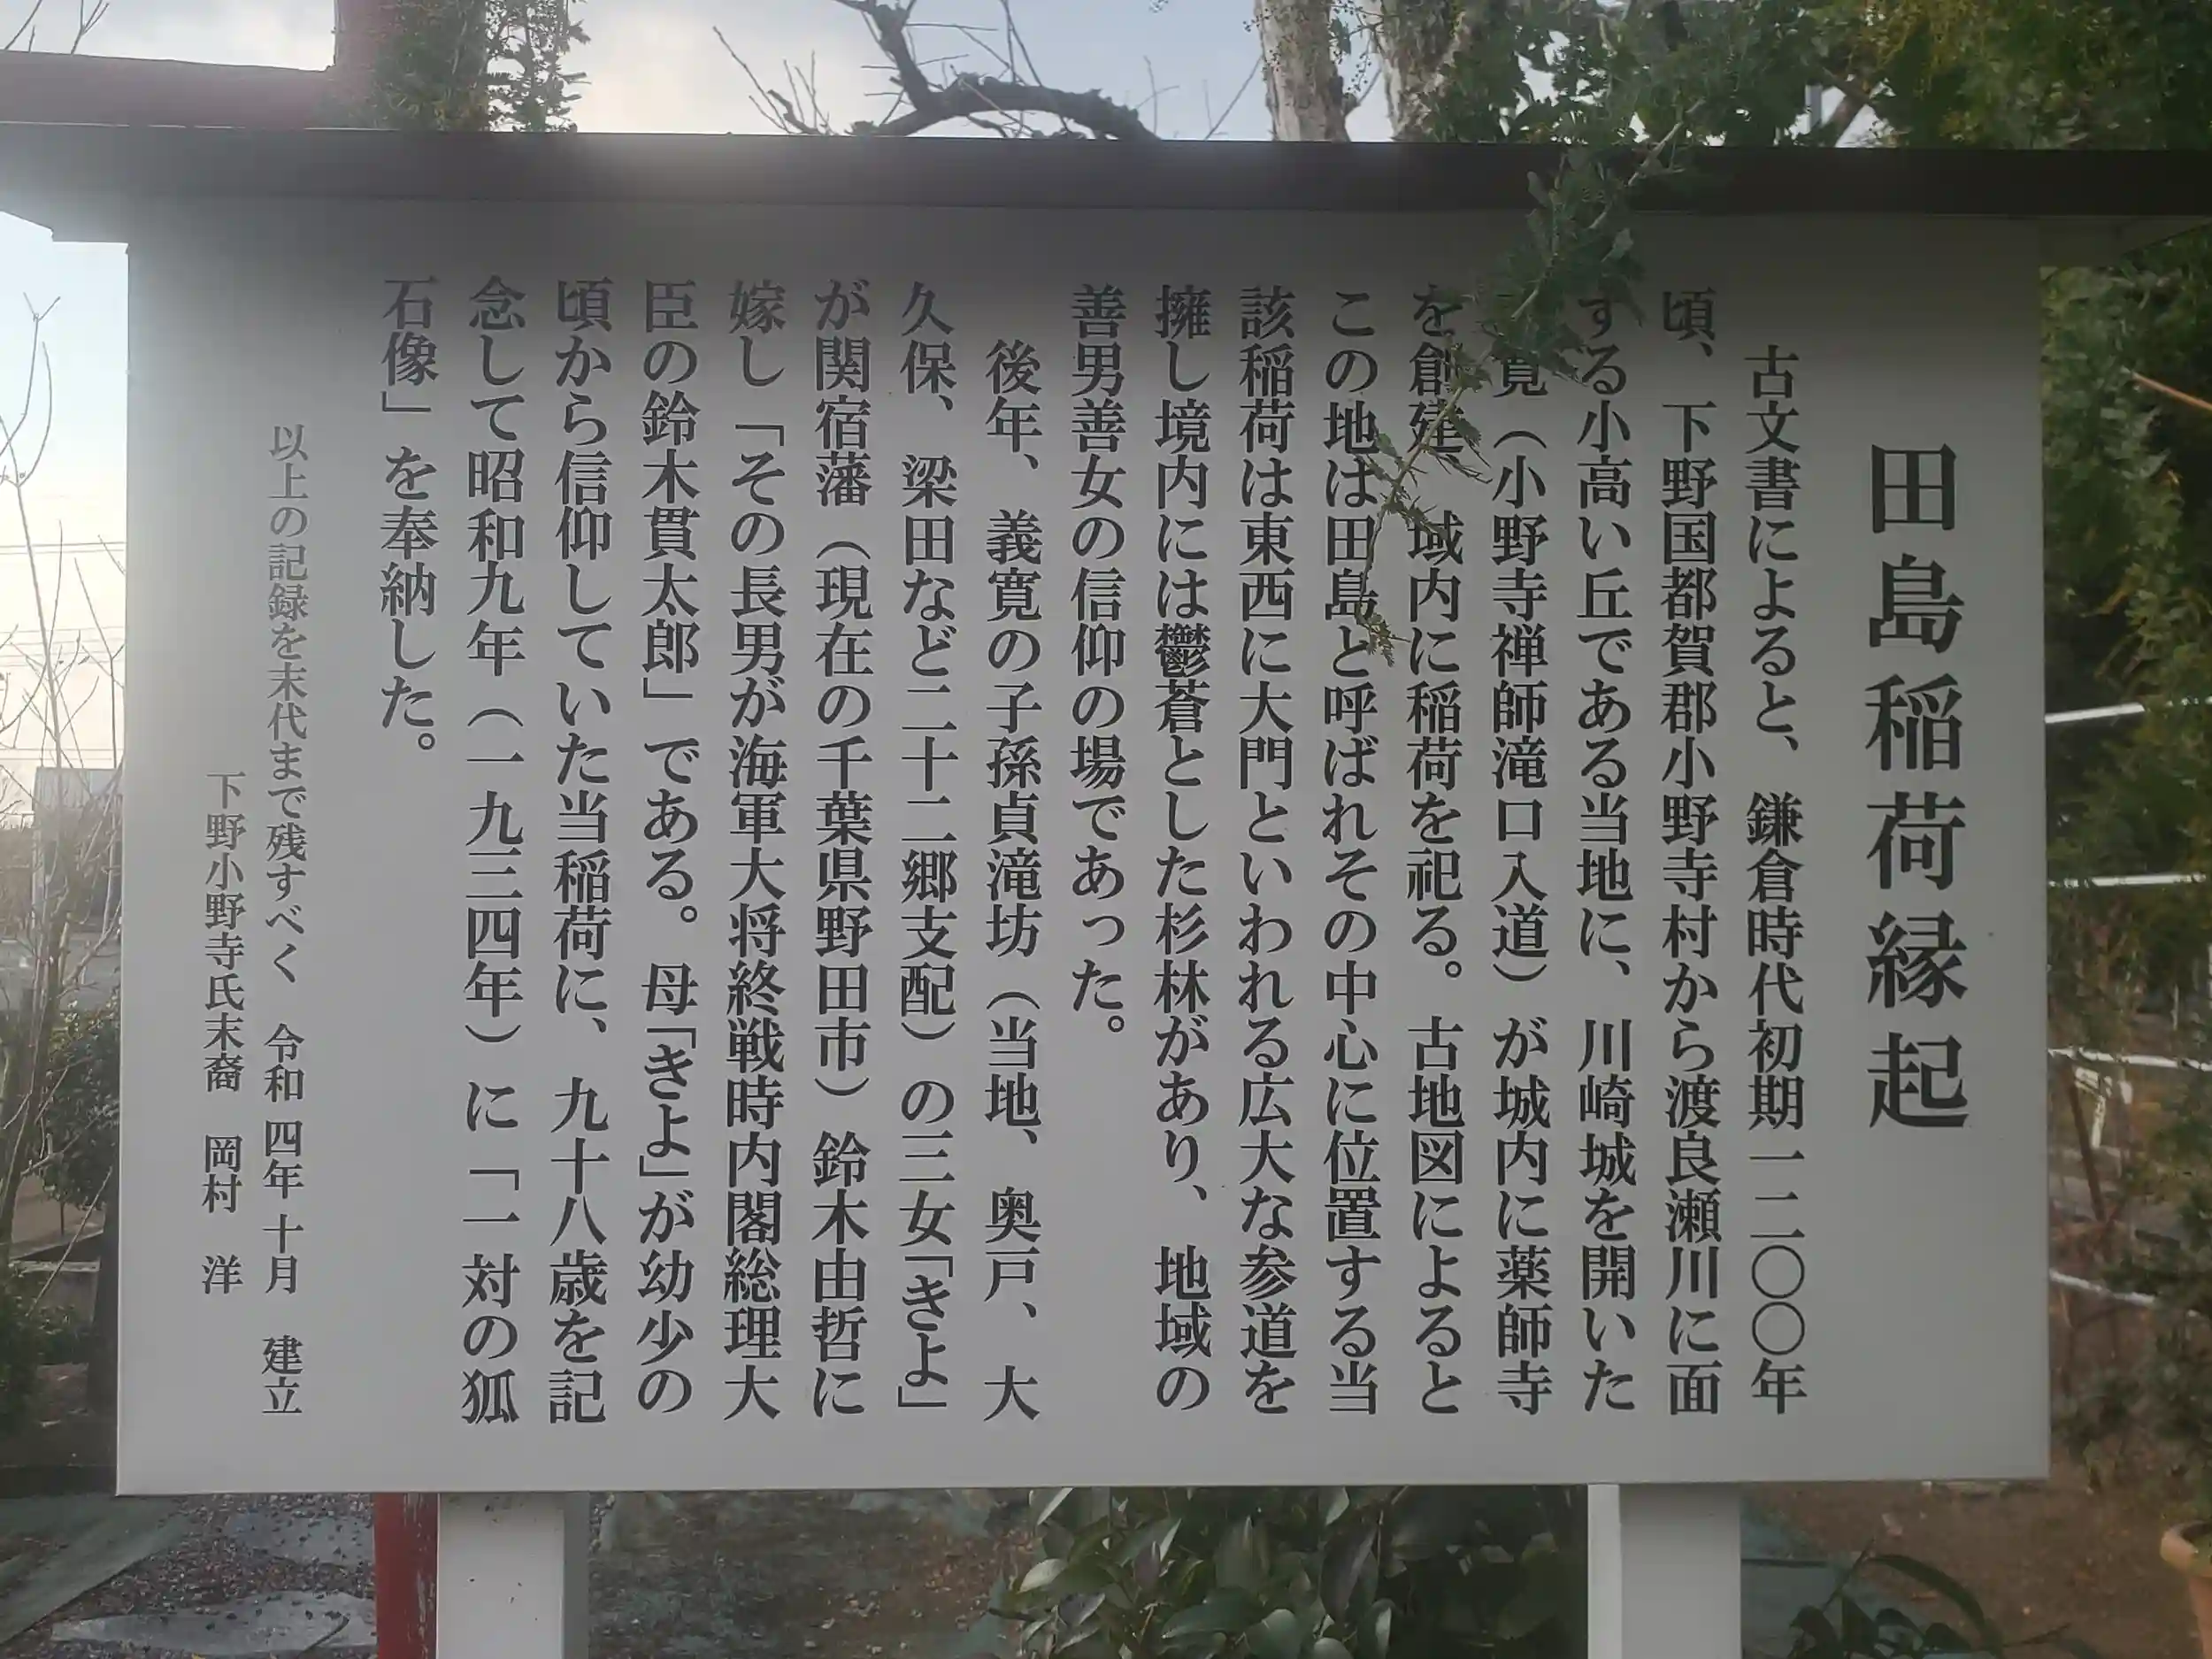 田島稲荷縁起
古文書によると、鎌倉時代初期一二〇〇年
頃、下野国都賀郡小野寺村から渡良瀬川に面
する小高い丘である当地に、川崎城を開いた
寛（小野寺禅師滝口入道）が城内に薬師寺
を創建、域内に稲荷を祀る。古地図によると
この地は田島と呼ばれその中心に位置する当
該稲荷は東西に大門といわれる広大な参道を
擁し境内には鬱蒼とした杉林があり、地域の
善男善女の信仰の場であった。
後年、義寛の子孫貞滝坊（当地、奥戸、大
久保、梁田など二十二郷支配）の三女「きよ」
が関宿藩（現在の千葉県野田市）鈴木由哲に
嫁し「その長男が海軍大将終戦時内閣総理大
臣の鈴木貫太郎」である。母「きよ」が幼少の
頃から信仰していた当稲荷に、九十八歳を記
念して昭和九年（一九三四年）に「一対の狐
石像」を奉納した。
以上の記録を末代まで残すべく 令和四年十月 建立
下野小野寺氏末裔 岡村 洋